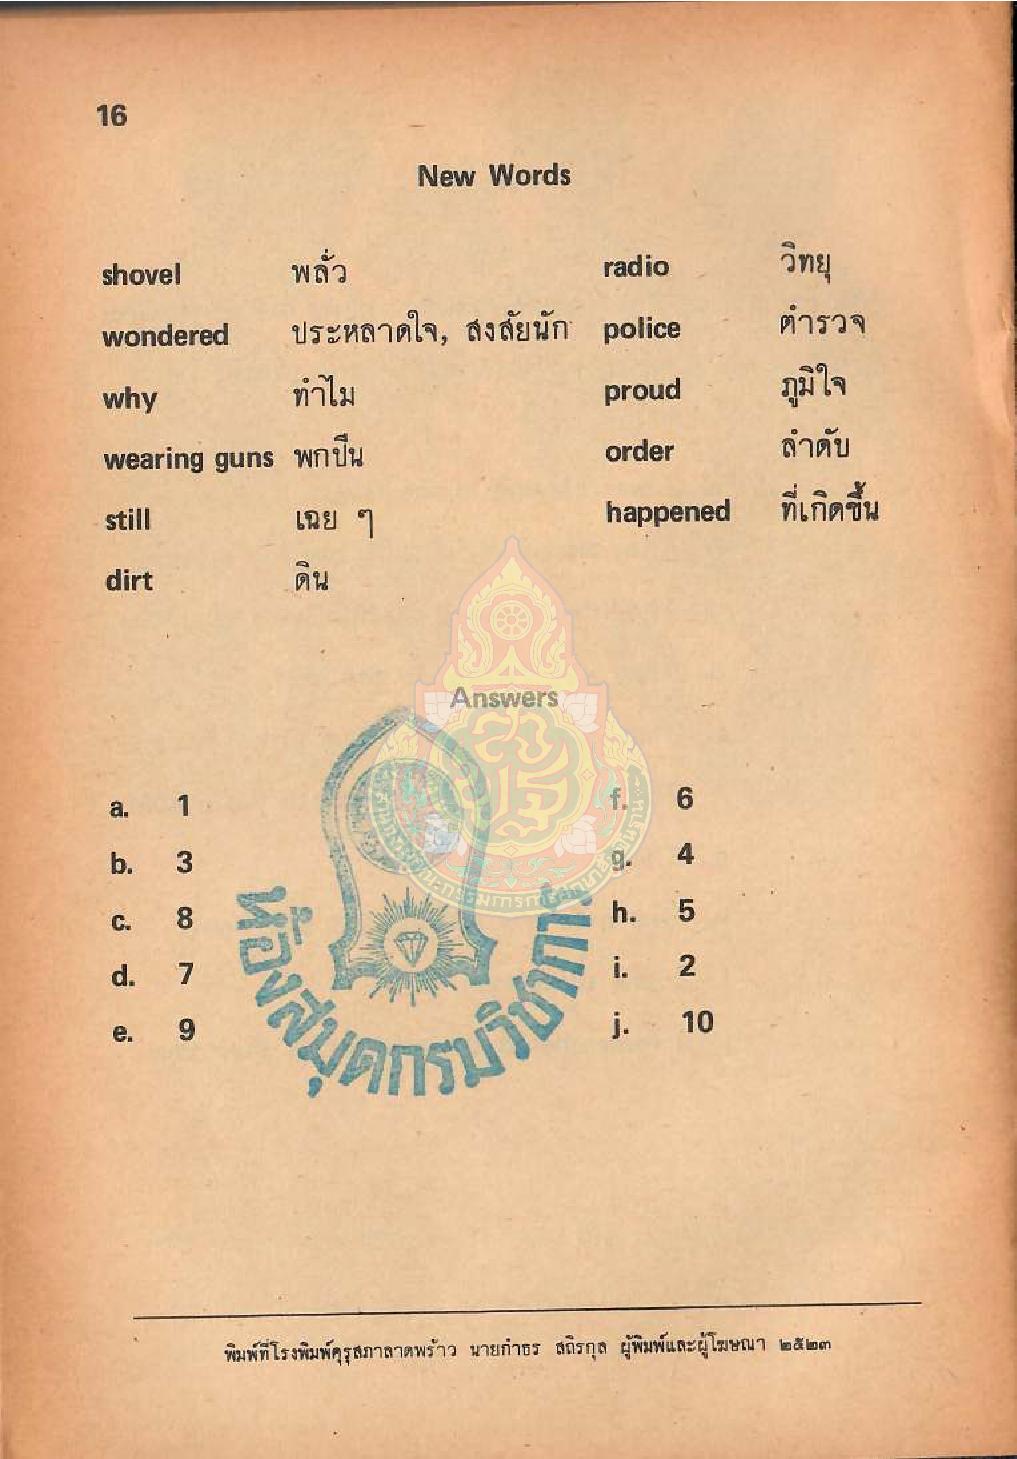 16
New Words
shovel พลั่ว
wondered ประหลาดใจ, สงสัยนัก
why ทำไม
wearing guns พกปืน
still เฉย ๆ
dirt ดิน
radio วิทยุ
police ตำรวจ
proud ภูมิใจ
order ลำดับ
happened ที่เกิดขึ้น
Answers
a. 1
b. 3
c. 8
d. 7
e. 9
f. 6
g. 4
h. 5
i. 2
j. 10
ห้องสมุดกรมวิชาการ
พิมพ์ที่โรงพิมพ์คุรุสภาลาดพร้าว นายกำธร สถิรกุล ผู้พิมพ์และผู้โฆษณา ๒๕๒๓